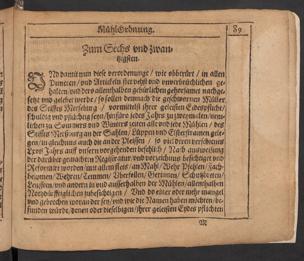 Mühl-Ordnung.
89
Zum Sechs und zwan-
tzigsten.
UNd damit nun diese verordenunge / wie obberürt / in allen
Puncten / und Articfeln stet vehst und unverbrüchlichen ge-
halten und dero allenthalben gebürlichen gehorsamet nachge-
setzt und gelebet werde / so sollen demnach die geschwornen Müller
des Stiffts Merseburg / vermittelst ihrer geleisten Eydespflicht /
schuldig und pflichtig seyn / hinfüro jedes Jahrs zu zweymalen / nem-
lichen zu Sommers und Winters zeiten alle und jede Mühlen / des
Stiffts Merseburg an der Sahlen / Luppen und Elsterstramen gele-
gen / in gleichnus auch die an der Pleissen /
Eylff Jahrs auff vorgehenden besichtigt / Nach ausweisung
der darüber gemachten Registratur und vorzeichnus besichtiget und
Mahl / Wehr Pfehlen / Fach-
beumen / Wehren / Temmen / Uberfellen / Gerinnen / Schutzbretten /
und andern in und ausserhalben der Mühlen / allenthalben
Notdürfftiglichen zubesichtigen / Und do einer oder mehr mangel
und gebrechen woran der sey / und wie die Namen haben möchten / be-
funden würde / denen oder dieselbigen / ihrer geleisten Eydes pflichten
M